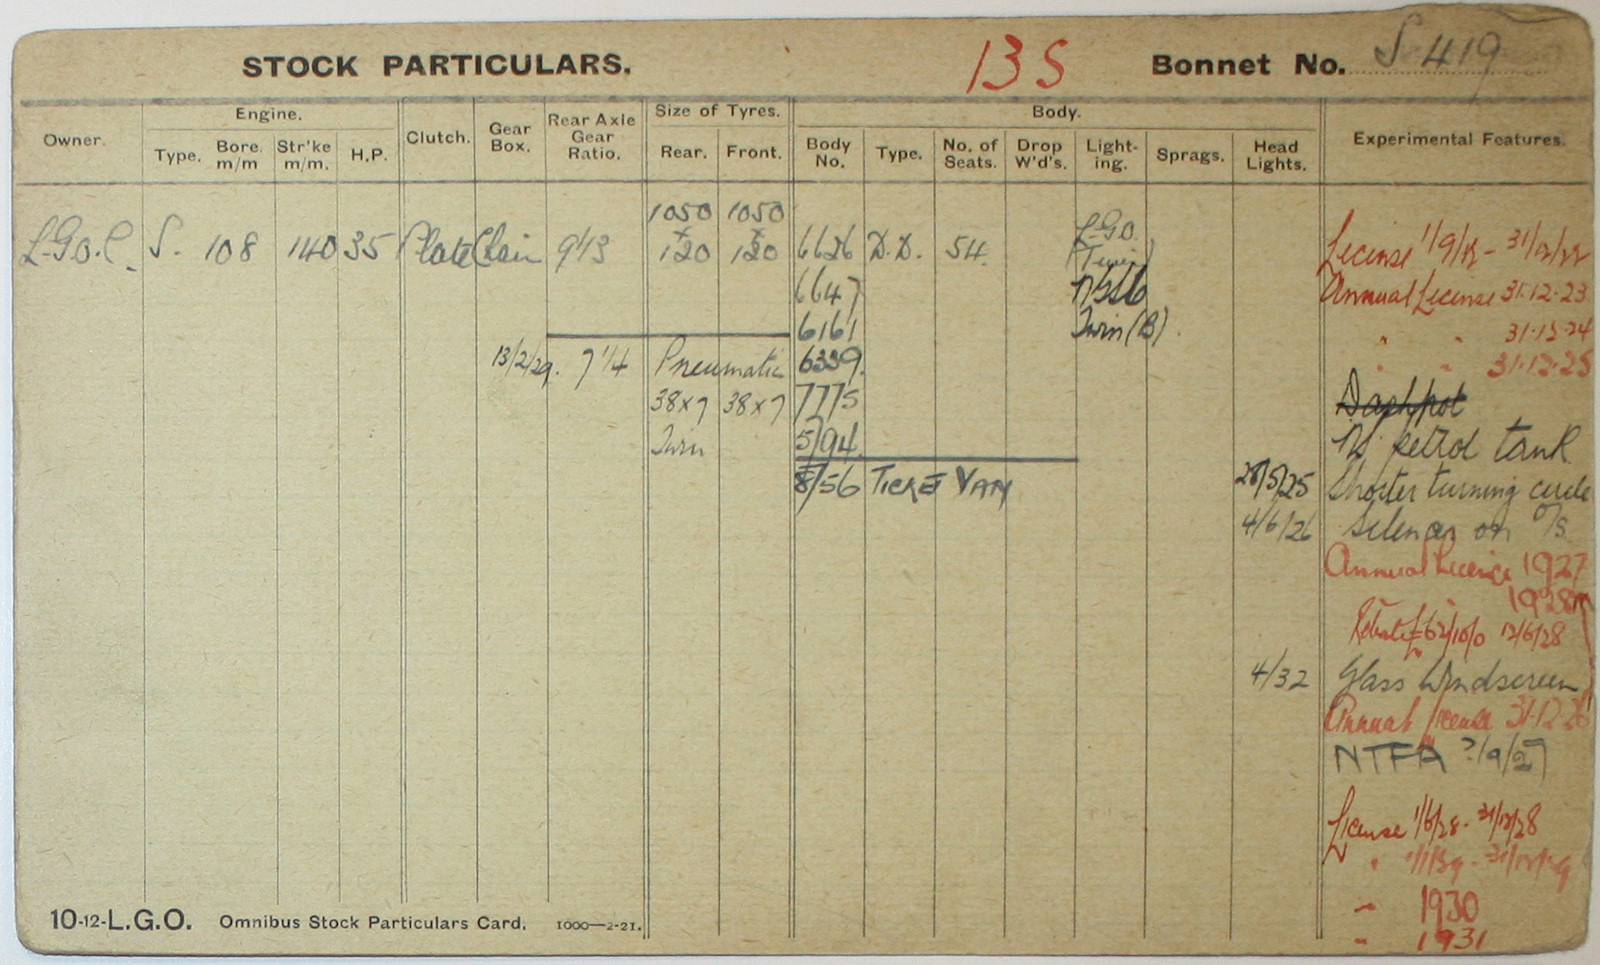 STOCK PARTICULARS. 13 S Bonnet No. S 419
Owner. Engine. Clutch. Gear Box. Rear Axle Gear Ratio. Size of Tyres. Body. Experimental Features.
Type. Bore. m/m Str'ke m/m. H.P. Rear. Front. Body No. Type. No. of Seats. Drop W'd's. Light- ing. Sprags. Head Lights.
1050 1050 L.G.O.
L.G.O.C. S. 108 140 35 Plate Chain 9'13 x 120 x 120 6626 D.D. 54. (Twin) License 1/9/22 - 31/12/22
6647 Annual License 31.12.23
6161 Twin (B). " " 31.12.24
13/2/29. 7'14 Pneumatic 6339 " " 31.12.25
38x7 38x7 7775 Dashpot
Twin 5194 NS. petrol tank
8156 TICKET VAN 28/5/25 Shorter turning circle
4/6/26 Silencer on O/S.
Annual Licence 1927
1928
Rebate £62/10/0 12/6/28
4/32 Glass Windscreen
Annual License 31.12.26
NTFA ?/9/27
License 1/6/28 - 31/12/28
"
" 1930
" 1931
10-12-L.G.O. Omnibus Stock Particulars Card. 1000—2-21.